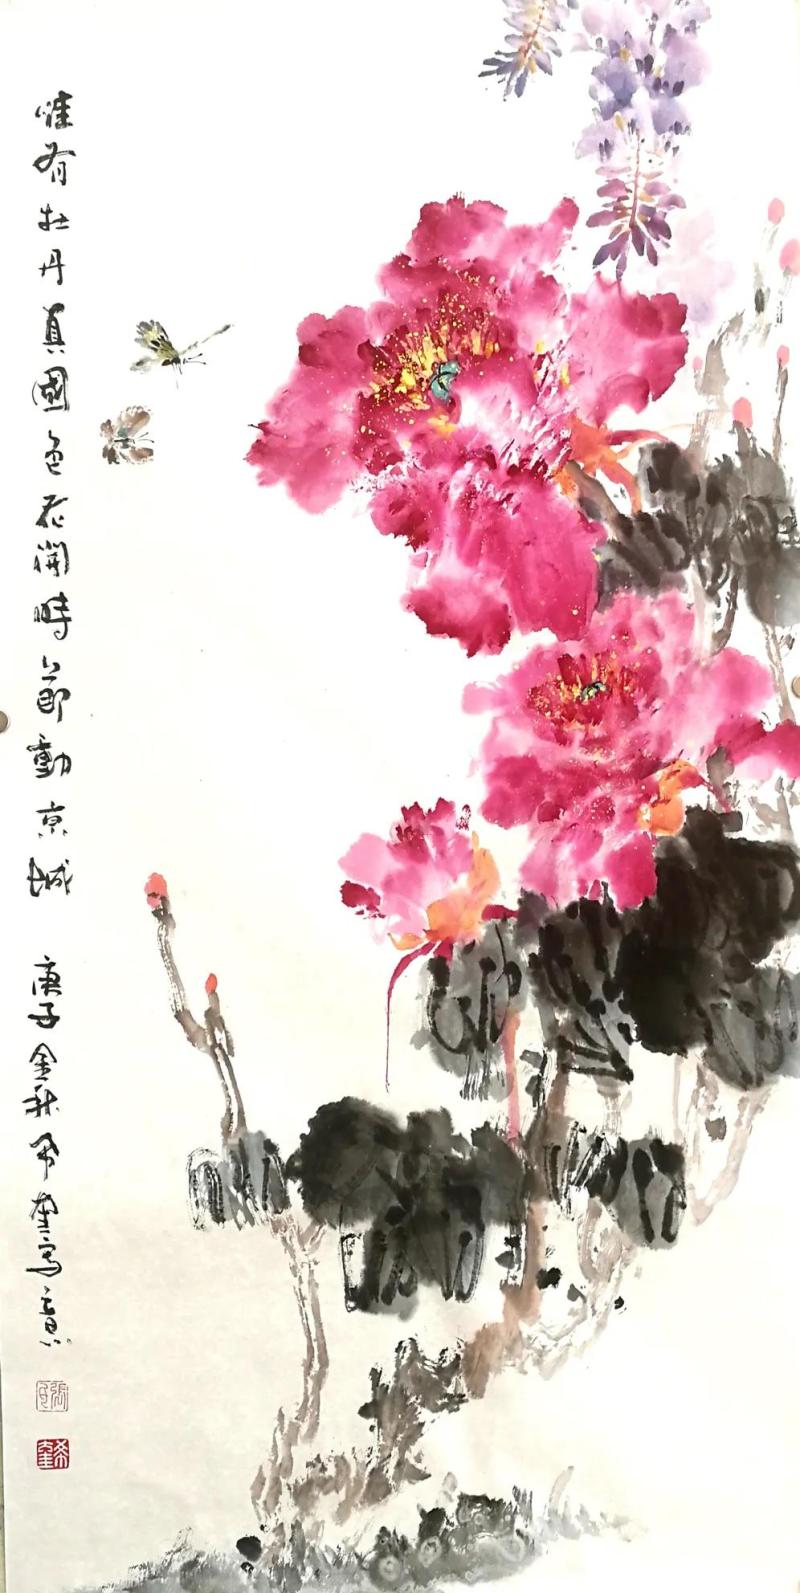 唯有牡丹真國色花開時節動京城 庚子金秋希奎寫意
希奎